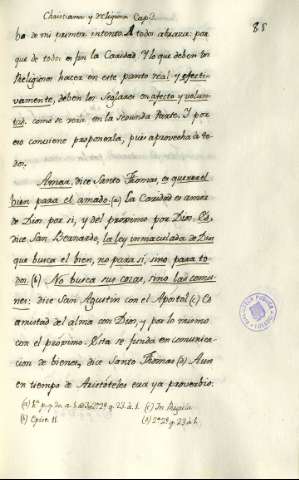 Christiana y Religiosa Cap.
85
ba de mi primera intento. A todos abraza: por
que de todos es son la Caridad. Y lo que deben los
Religiosos hacer en este punto real y efecti-
vamente, deben los Seglares en afecto y volun-
tad, como se verá en la segunda Parte. Y por
eso conviene proponerla, pues aprovecha à to-
dos.
Amar, dice Santo Thomas, es querer el
bien para el amado. (a) La Caridad es amor
de Dios por si, y del proximo por Dios. Es,
dice San Bernardo, la ley inmaculada de Dios
que busca el bien, no para si, sino para to-
dos. (b) No busca sus cosas, sino las comu-
nes: dice San Agustin con el Apostol (c) Es
amistad del alma con Dios, y por lo mismo
con el proximo. Esta se funda en comunica-
cion de bienes, dice Santo Thomas (d) Aun
en tiempo de Aristoteles era ya proverbio:
(b) Epist. 11
(c) In Regula
(d) 2ª 2ª q. 23 a. 1.